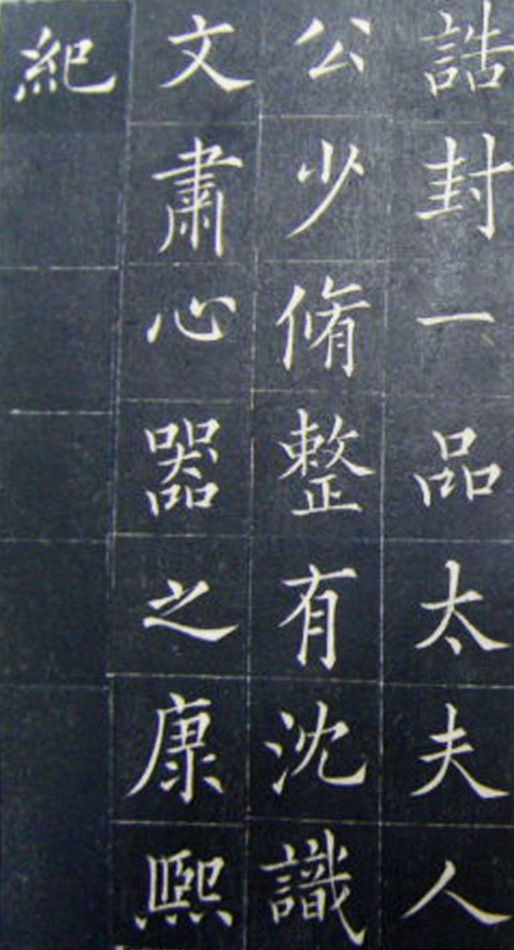 誥封一品太夫人
公少脩整有沈識
文肅心器之康熙
紀